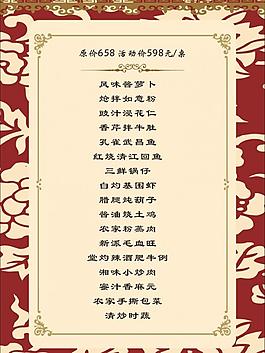 原价658 活动价598元/桌
风味酱萝卜
炝拌如意粉
豉汁浸花仁
香芹拌牛肚
孔雀武昌鱼
红烧清江回鱼
三鲜锅仔
白灼基围虾
腊腿炖葫子
酱油烧土鸡
农家粉蒸肉
新派毛血旺
堂灼辣酒肥牛例
湘味小炒肉
蜜汁香麻元
农家手撕包菜
清炒时蔬